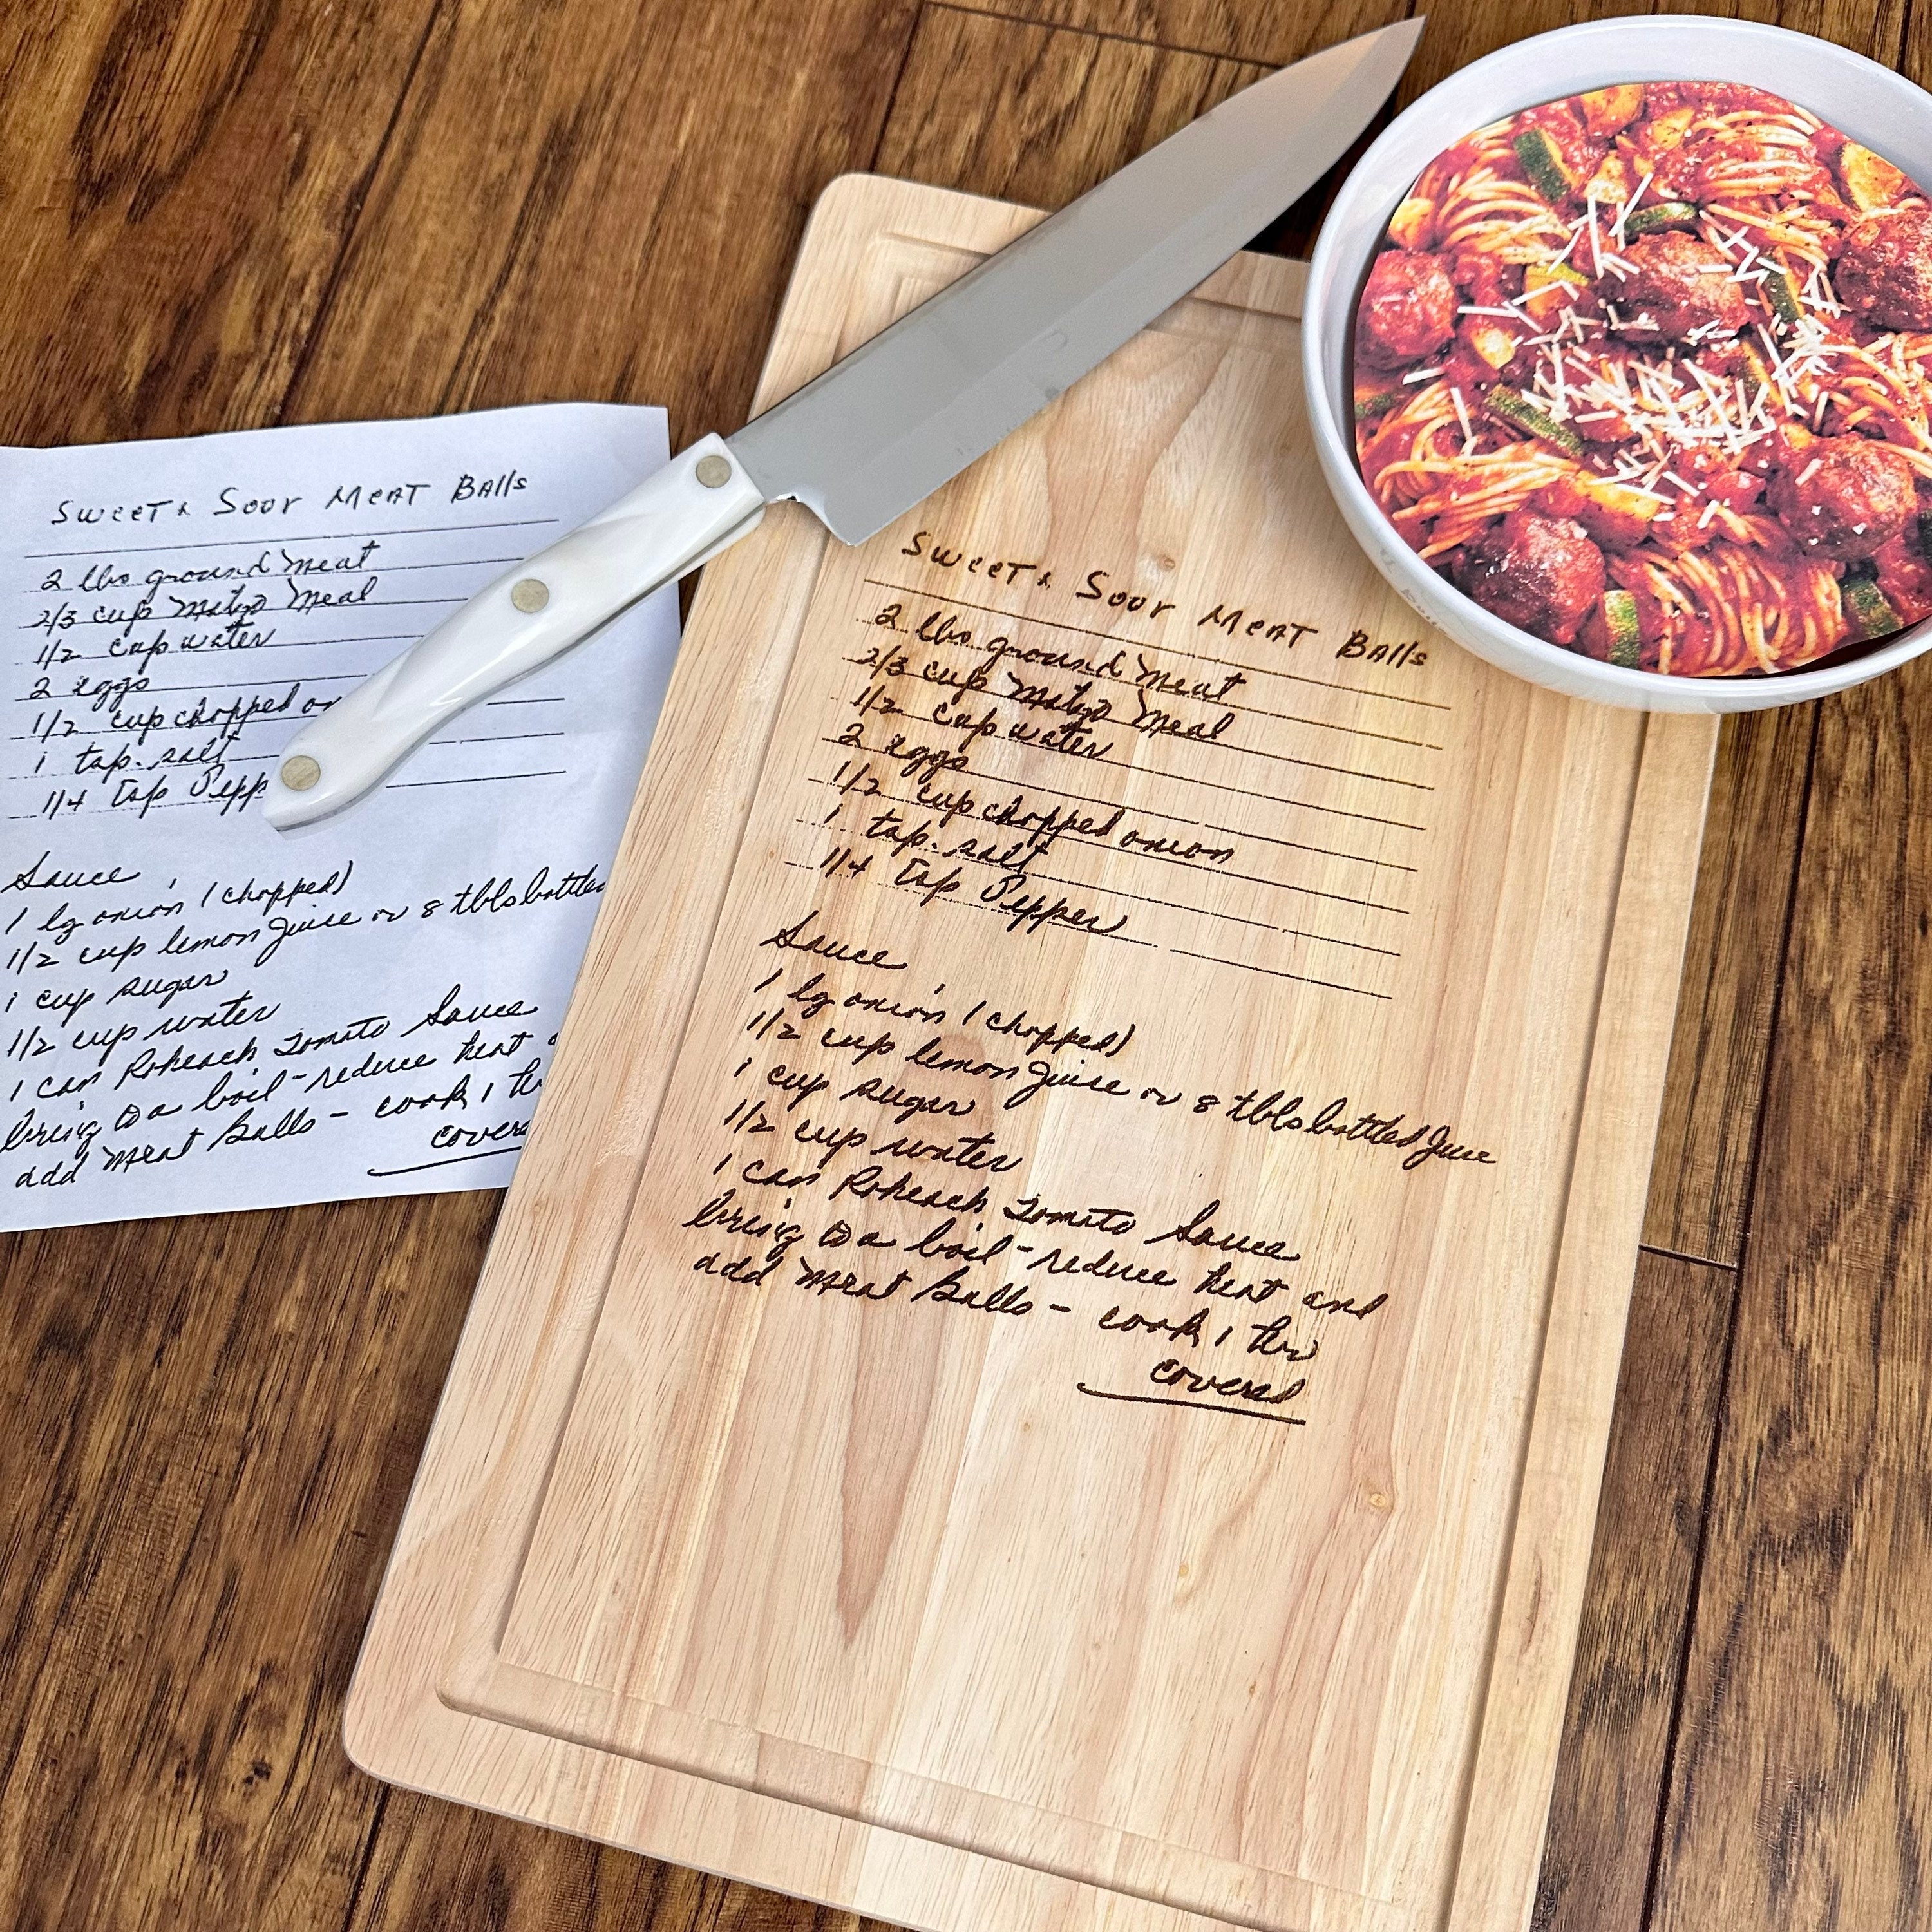 Sweet & Sour Meat Balls
2 lbs ground meat
2/3 cup Matzo Meal
1/2 cup water
2 eggs
1/2 cup chopped on
1 tsp. salt
1/4 tsp Pepp
Sauce
1 lg onion (chopped)
1/2 cup lemon juice or 8 tbls bottled
1 cup sugar
1/2 cup water
1 can Rokeach Tomato Sauce
bring to a boil - reduce heat
add Meat Balls - cook 1 h
covere
Sweet & Sour Meat Balls
2 lbs ground meat
2/3 cup Matzo Meal
1/2 cup water
2 eggs
1/2 cup chopped onion
1 tsp. salt
1/4 tsp Pepper
Sauce
1 lg onion (chopped)
1/2 cup lemon juice or 8 tbls bottled juice
1 cup sugar
1/2 cup water
1 can Rokeach Tomato Sauce
bring to a boil - reduce heat and
add Meat Balls - cook 1 hr
covered